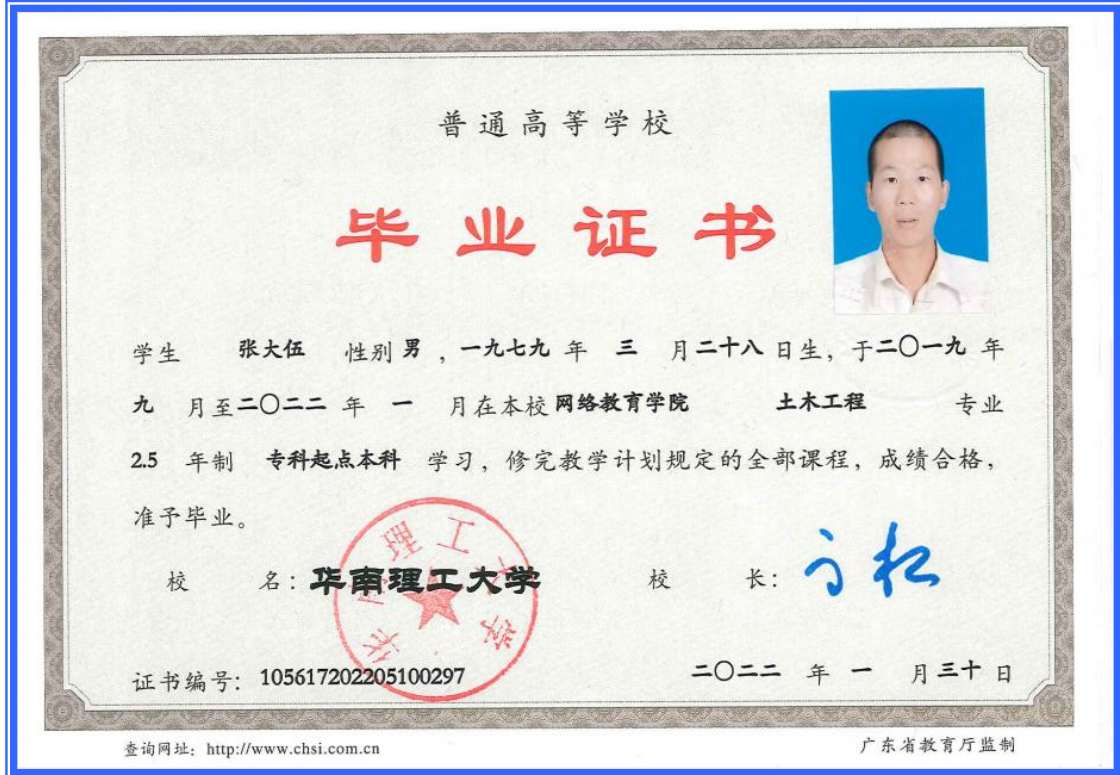 普通高等学校
毕业证书
学生 张大伍 性别 男 ，一九七九 年 三 月 二十八 日生，于二〇一九 年
九 月至二〇二二 年 一 月在本校 网络教育学院 土木工程 专业
2.5 年制 专科起点本科 学习，修完教学计划规定的全部课程，成绩合格，
准予毕业。
校 名：华南理工大学 校 长：
华南理工大学
证书编号：105617202205100297 二〇二二 年 一 月三十 日
查询网址：http://www.chsi.com.cn 广东省教育厅监制